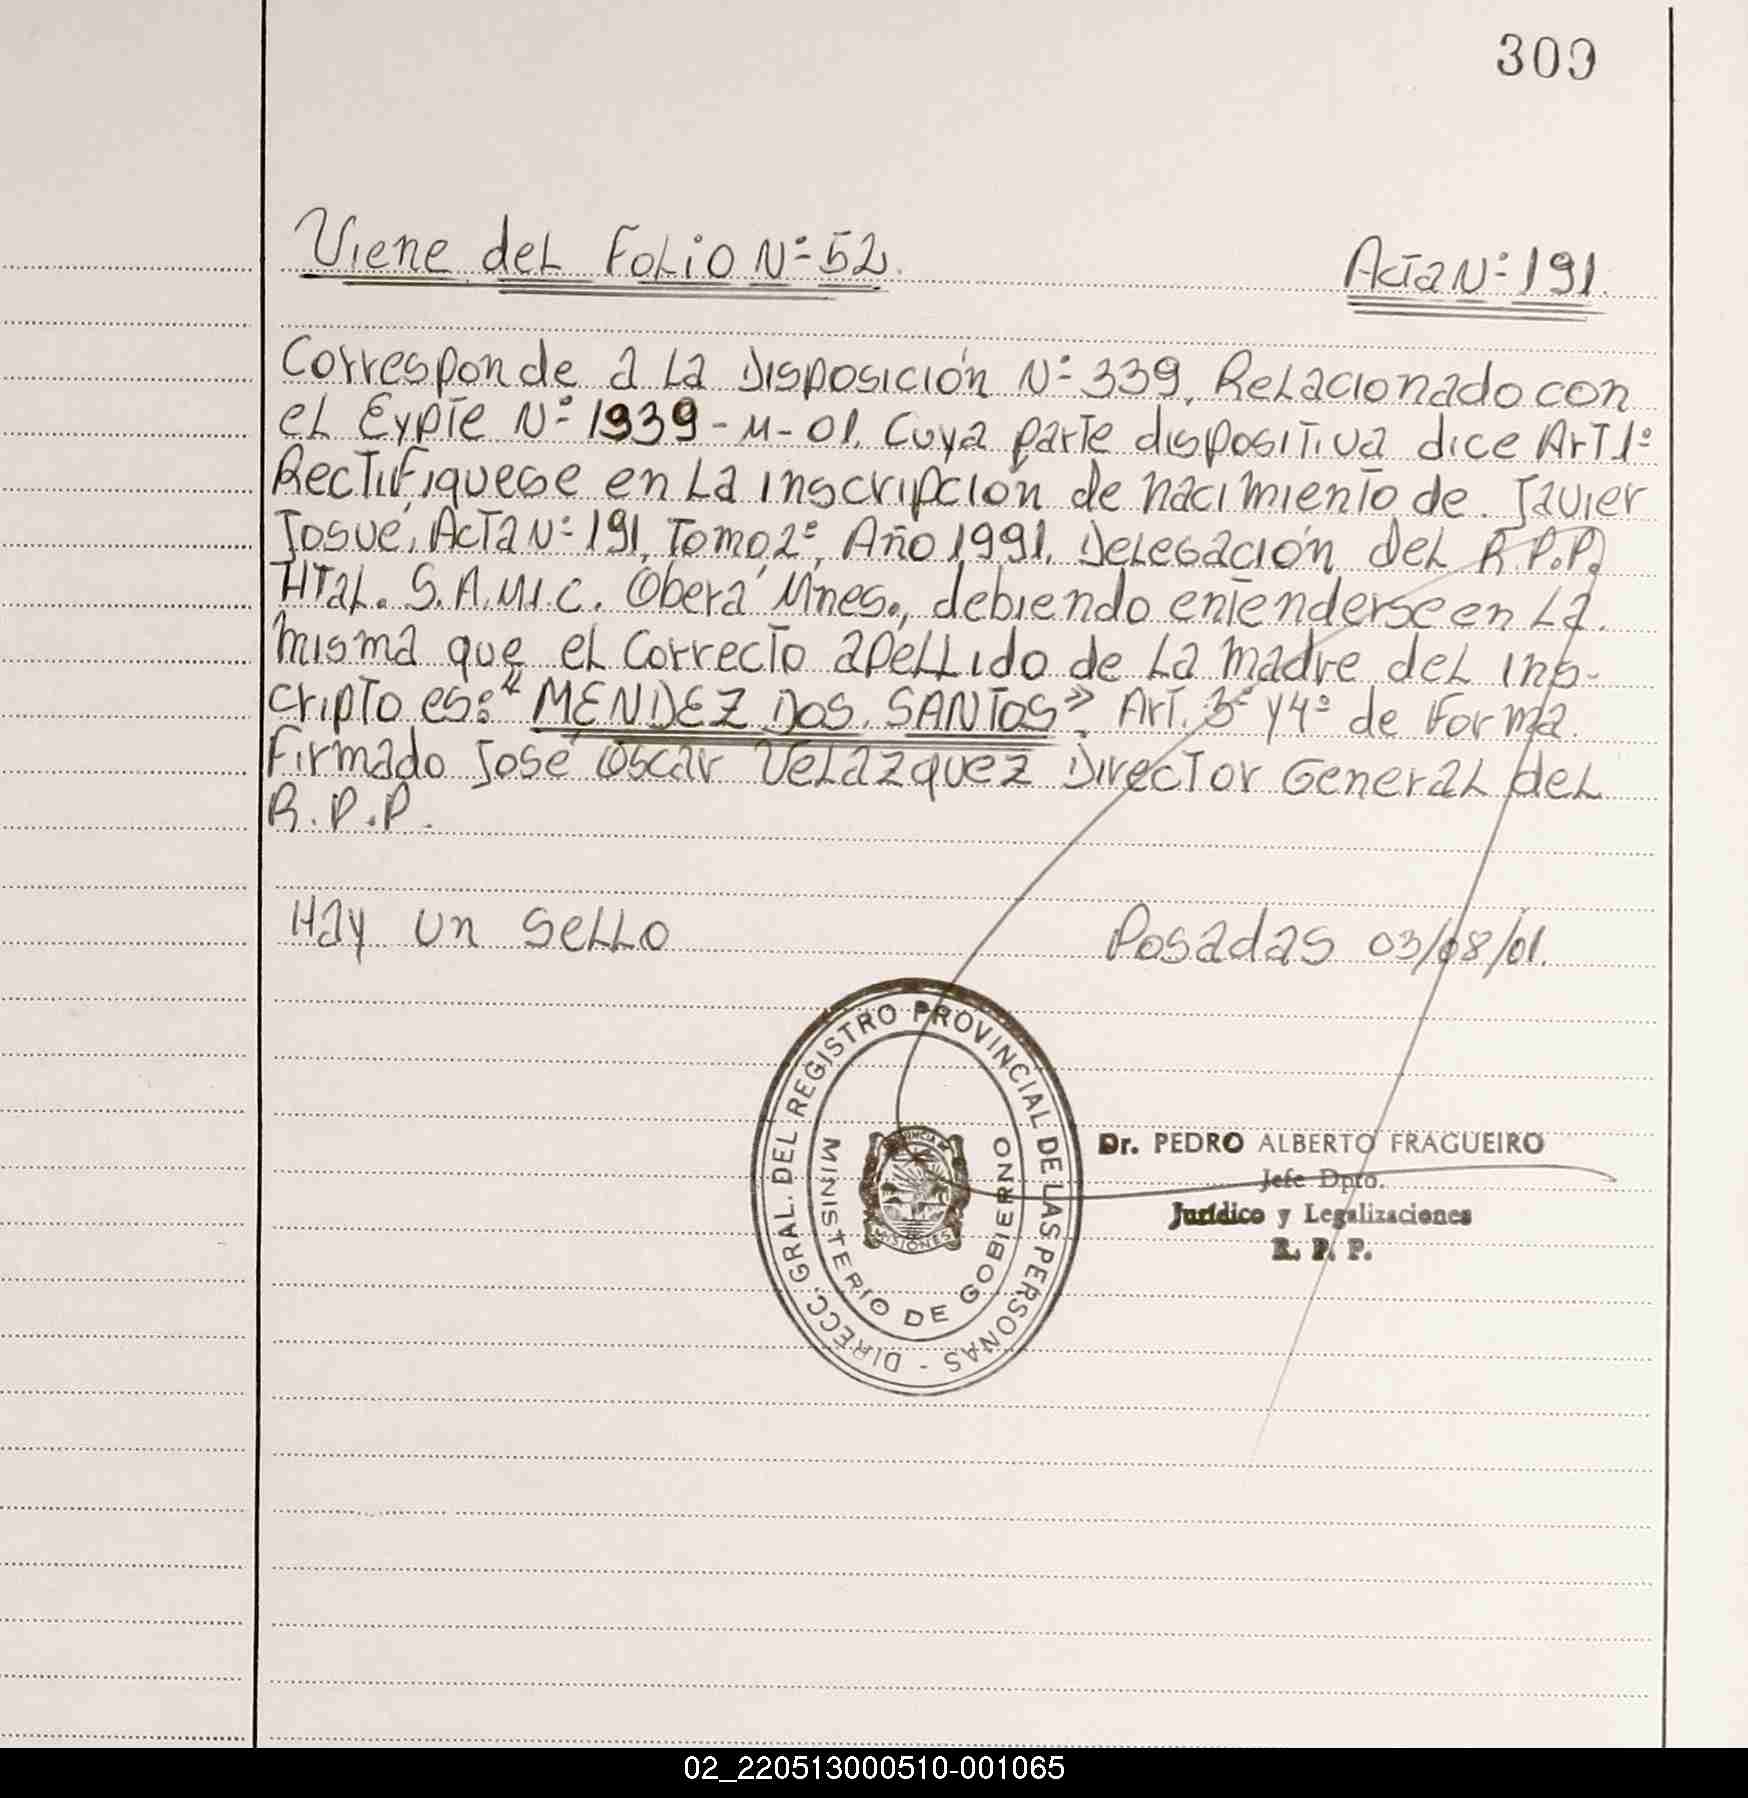 309
Viene del Folio Nº 52. Acta Nº 191.
Corresponde a la Disposición Nº 339, Relacionado con
el Expte Nº 1939-M-01. Cuya parte dispositiva dice Art 1º
Rectifiquese en la inscripción de nacimiento de. Javier
Josué, Acta Nº 191, Tomo, 2º, Año 1991, Delegación del R.P.P.
Htal. S.A.M.I.C. Oberá, Mnes., debiendo entenderse en la.
misma que el correcto apellido de la madre del ins-
cripto es: "MÉNDEZ DOS. SANTOS". Art. 3º y 4º de Forma.
Firmado José Oscar Velazquez Director General del
R.P.P.
Hay un sello Posadas 03/08/01.
DIRECC. GRAL. DEL REGISTRO PROVINCIAL DE LAS PERSONAS -
MINISTERIO DE GOBIERNO
PROVINCIA DE
MISIONES
Dr. PEDRO ALBERTO FRAGUEIRO
Jefe Dpto.
Jurídico y Legalizaciones
R. P. P.
02_220513000510-001065